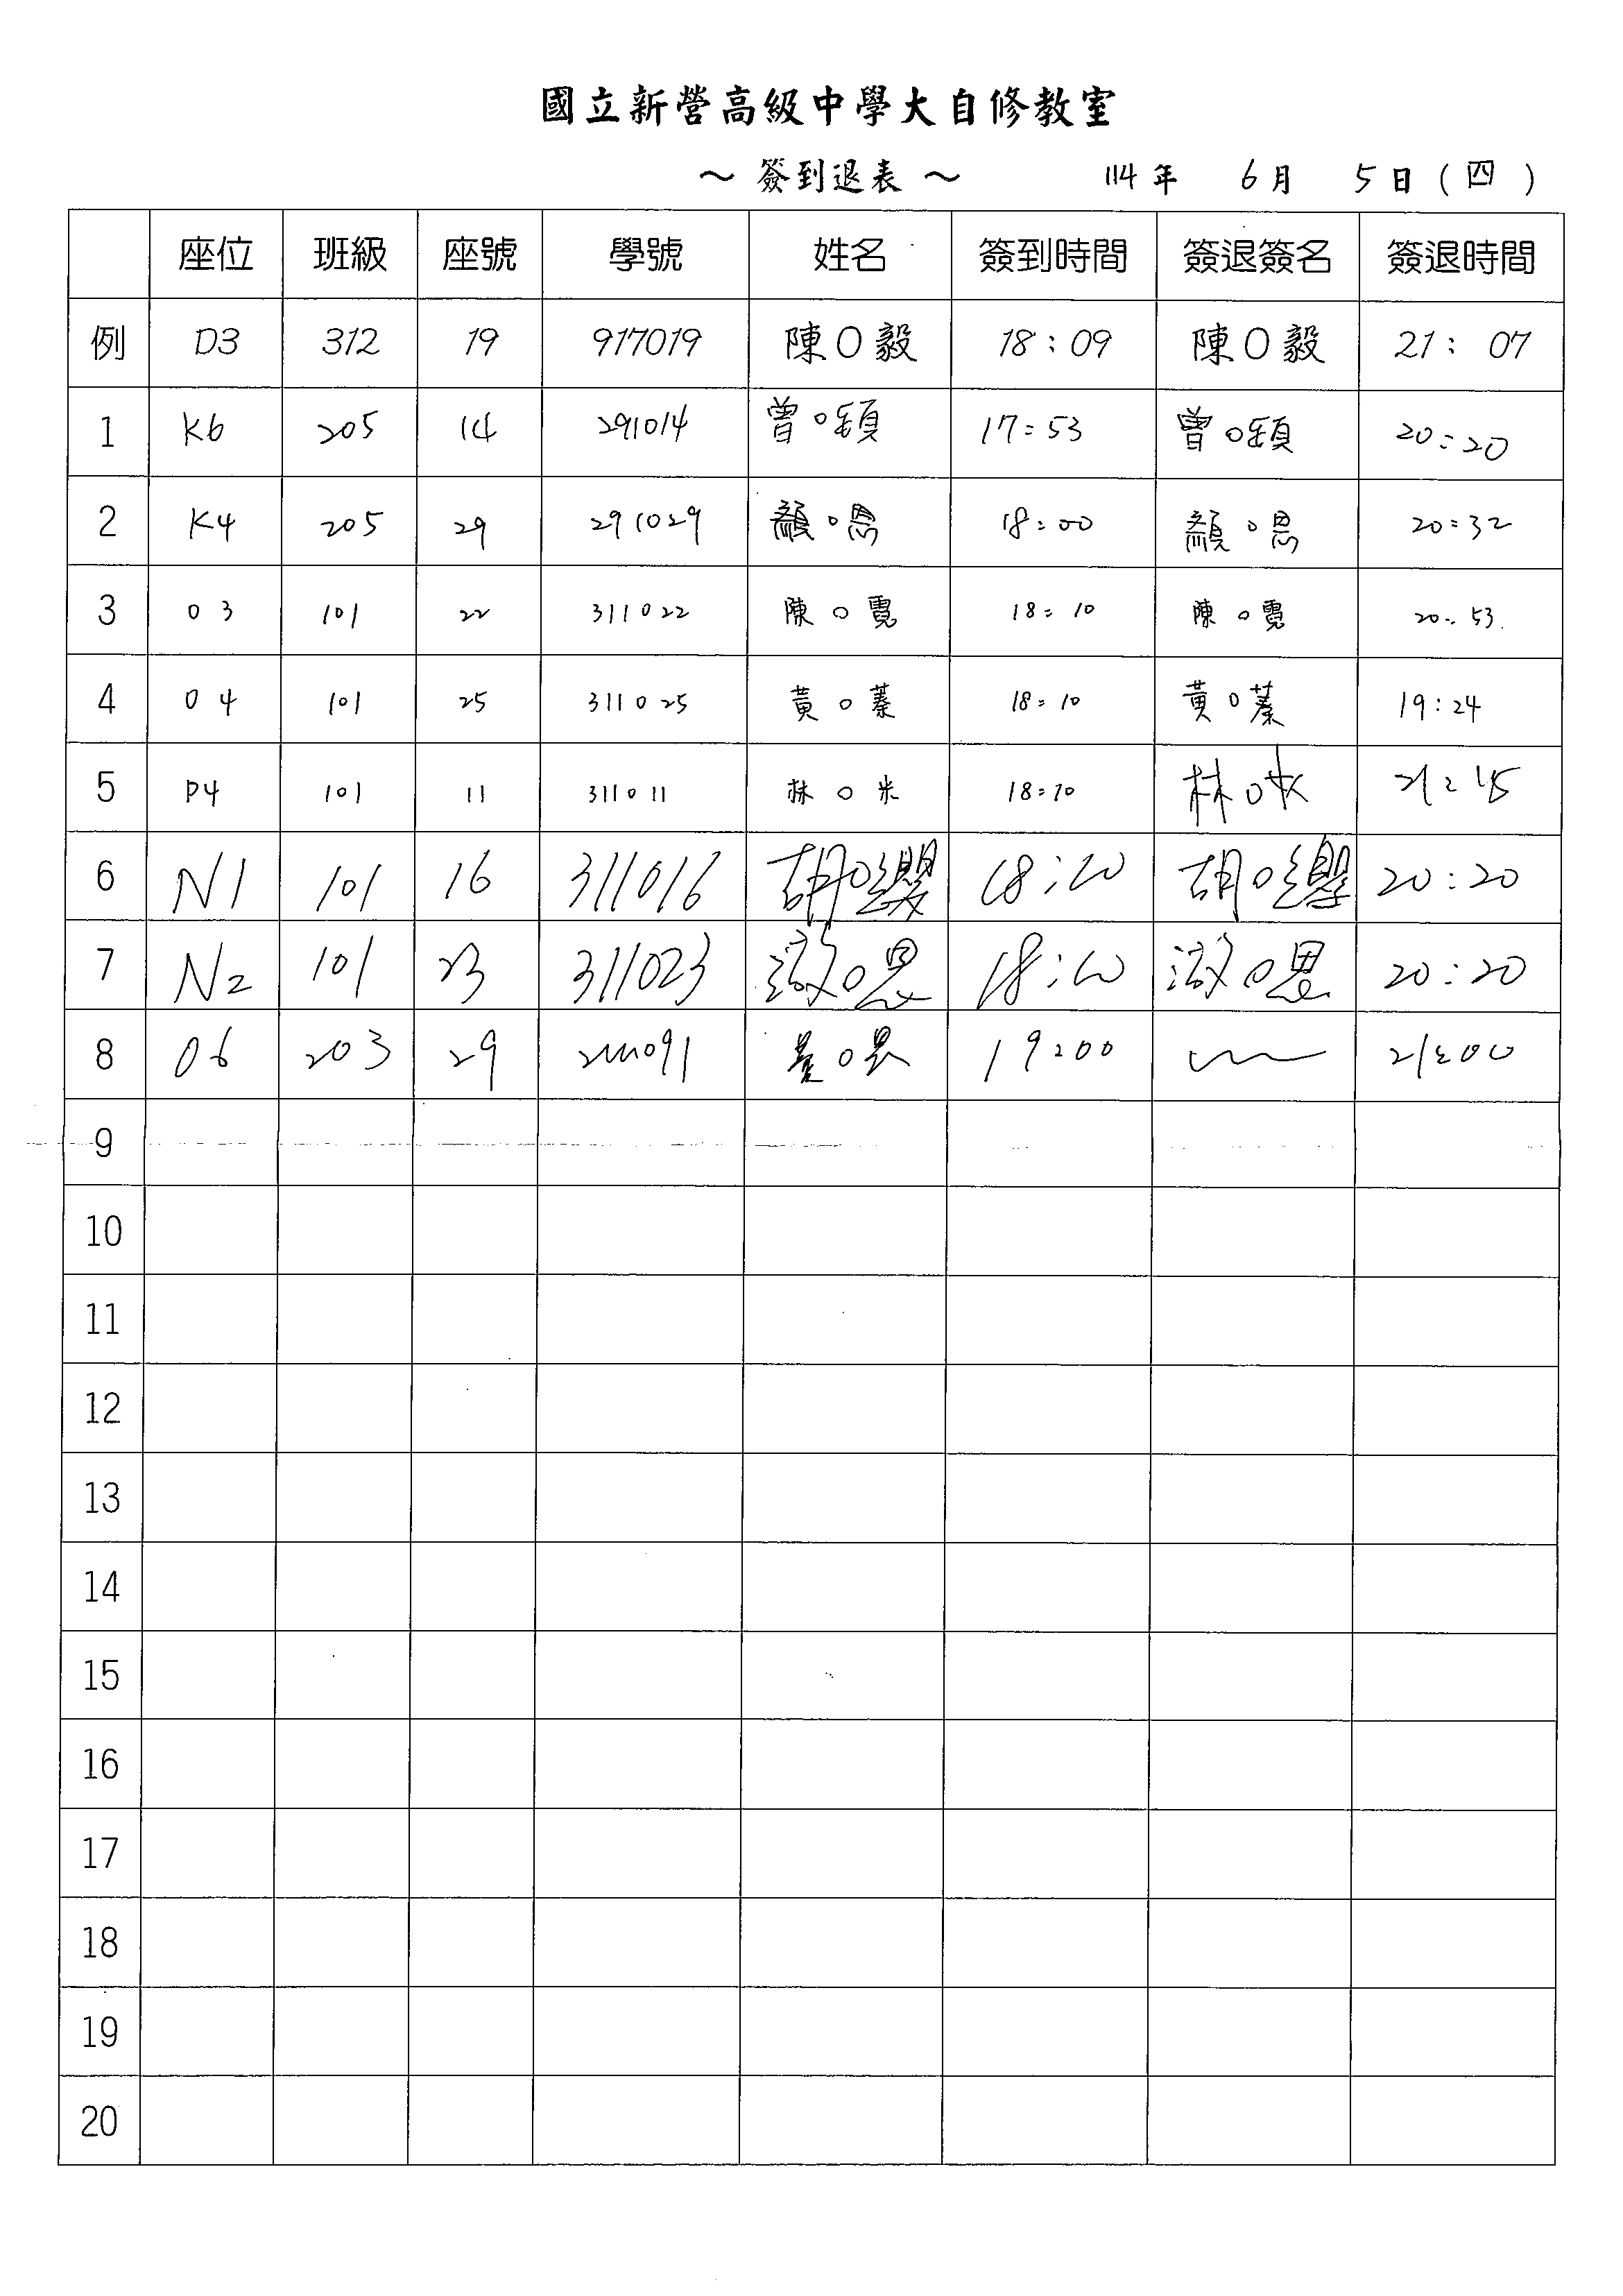 國立新營高級中學大自修教室
～ 簽到退表 ～ 114 年 6 月 5 日 ( 四 )
座位 班級 座號 學號 姓名 簽到時間 簽退簽名 簽退時間
例 D3 312 19 917019 陳O毅 18:09 陳O毅 21:07
1 K6 205 14 291014 曾O頴 17:53 曾O頴 20:20
2 K4 205 29 291029 顏O恩 18:00 顏O恩 20:32
3 03 101 22 311022 陳O霓 18:10 陳O霓 20:53
4 04 101 25 311025 黃O蓁 18:10 黃O蓁 19:24
5 P4 101 11 311011 林O米 18:10 林O 21:45
6 N1 101 16 311016 胡O 18:20 胡O 20:20
7 N2 101 23 311023 O恩 18:20 O恩 20:20
8 06 203 29 19:00 21:00
9
10
11
12
13
14
15
16
17
18
19
20